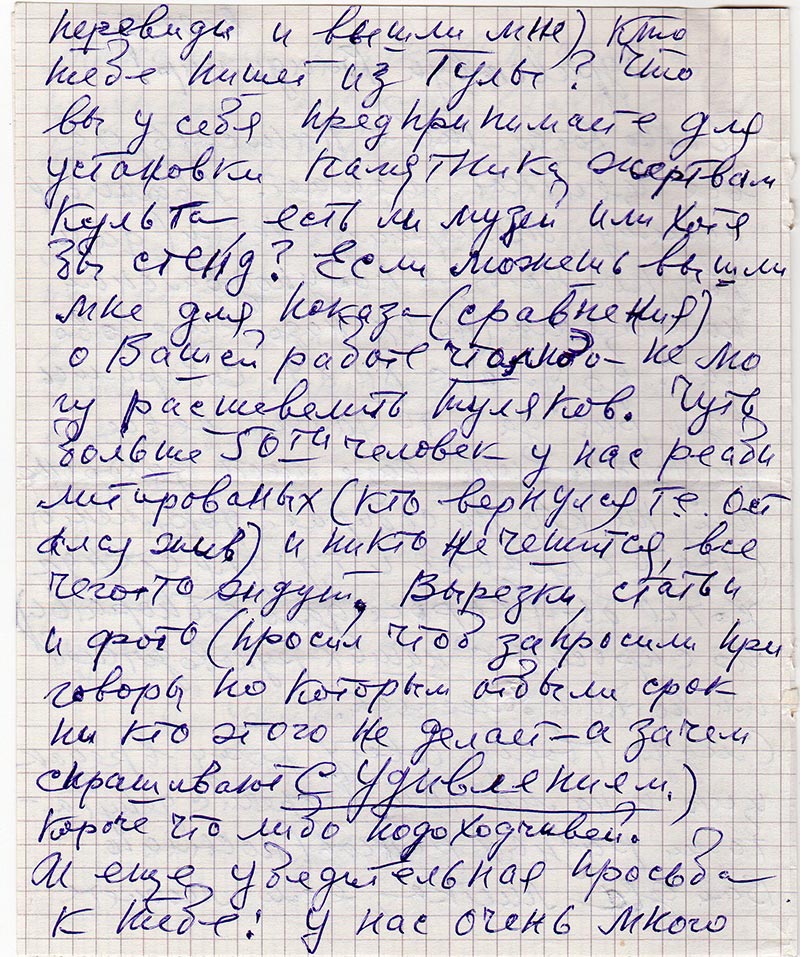 переведи и вышли мне) Кто
тебе пишет из Тулы? Что
вы у себя предпринимаете для
установки памятника жертвам
культа, есть ли музей или хотя
бы стенд? Если можешь вышли
мне для показа (сравнения)
о Вашей работе что либо – не мо
гу расшевелить туляков. Чуть
больше 50ти человек у нас реаби
литированых (кто вернулся т.е. ост
ался жив) и никто не чешится, все
чего-то ждут. Вырезки, статьи
и фото (просил чтоб запросили при
говоры по которым отбыли срок
ни кто этого не делает – а зачем
спрашивают с удивлением.)
Короче что либо подоходчивей.
И еще убедительная просьба
к тебе: у нас очень много